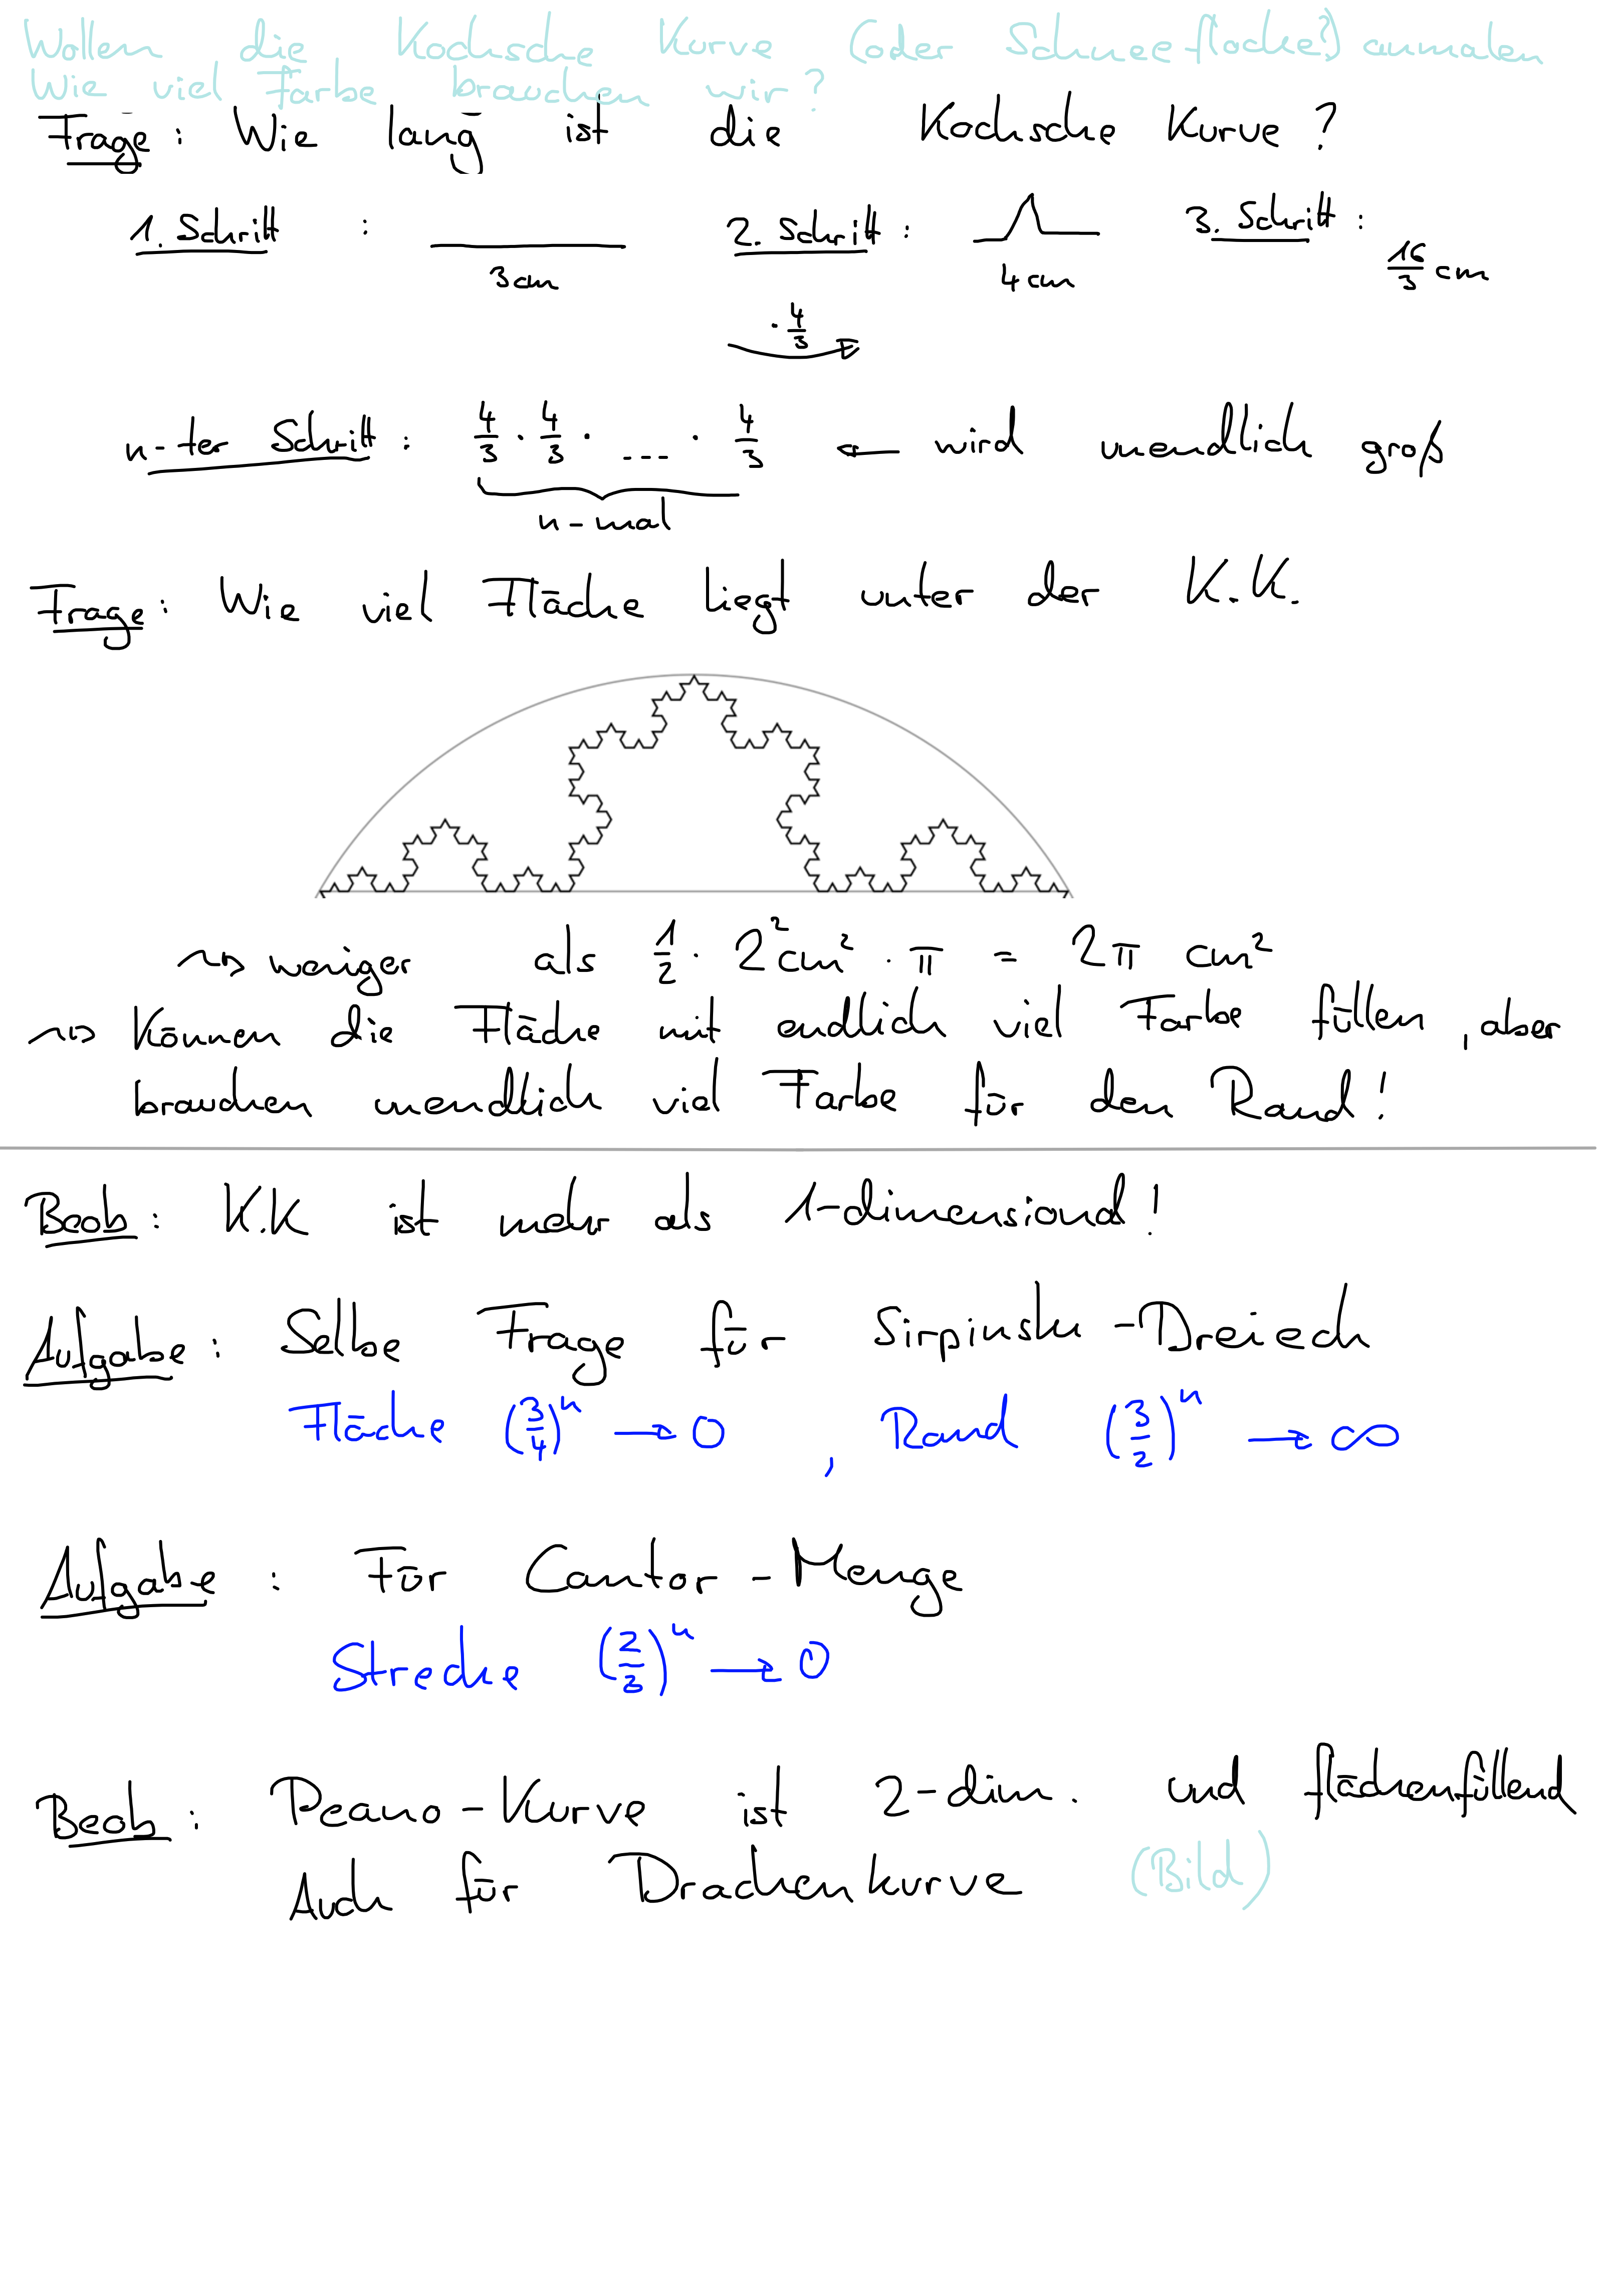 Wollen die Kochsche Kurve (oder Schneeflocke?) anmalen
Wie viel Farbe brauchen wir?
Frage: Wie lang ist die Kochsche Kurve?
1. Schritt: 3cm 2. Schritt: 4cm 3. Schritt: 16/3 cm
· 4/3
n-ter Schritt: 4/3 · 4/3 · ... · 4/3 ← wird unendlich groß
n-mal
Frage: Wie viel Fläche liegt unter der K.K.
⇝ weniger als 1/2 · 2² cm² · π = 2π cm²
⇝ Können die Fläche mit endlich viel Farbe füllen, aber
brauchen unendlich viel Farbe für den Rand!
Beob: K.K ist mehr als 1-dimensional!
Aufgabe: Selbe Frage für Sirpinski-Dreieck
Fläche (3/4)ⁿ → 0, Rand (3/2)ⁿ → ∞
Aufgabe: Für Cantor-Menge
Strecke (2/3)ⁿ → 0
Beob: Peano-Kurve ist 2-dim. und flächenfüllend
Auch für Drachenkurve (Bild)